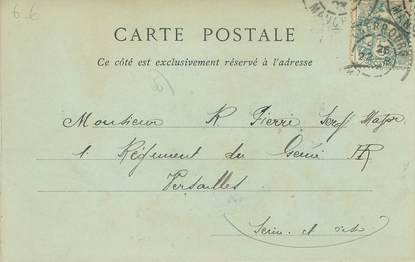 6.6
CARTE POSTALE
Ce côté est exclusivement réservé à l'adresse
Monsieur R Pierre Serg Major
1. Régiment du Génie
Versailles
Seine et Oise
CHERBOURG